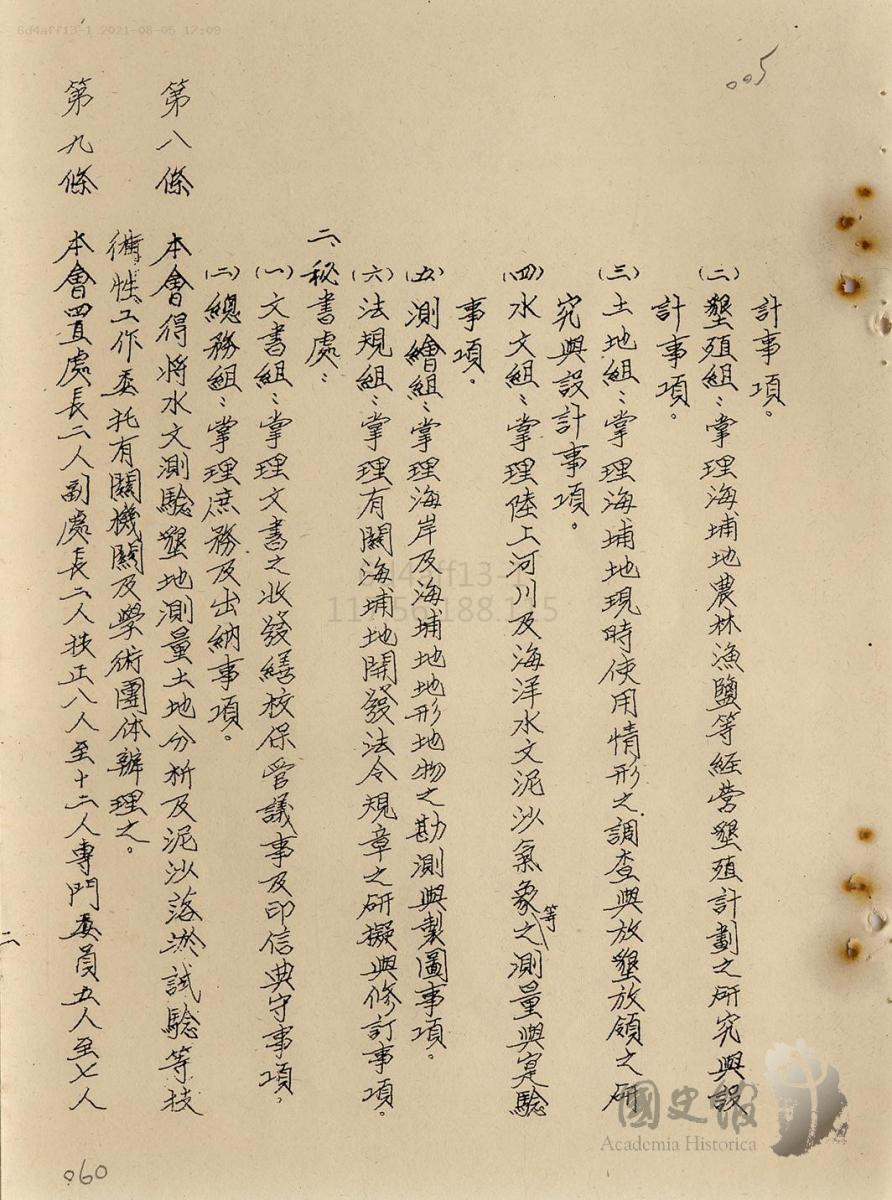 6d4aff13-1 2021-08-05 17:09
005
計事項。
(二)墾殖組：掌理海埔地農林漁鹽等経营墾殖計劃之研究與設
計事項。
(三)土地組：掌理海埔地現時使用情形之調查與放墾放領之研
究與設計事項。
(四)水文組：掌理陸上河川及海洋水文泥沙氣象等之測量與實驗
事項。
(五)測繪組：掌理海岸及海埔地地形地物之勘測與製圖事項。
(六)法規組：掌理有關海埔地開發法令規章之研擬與修訂事項。
二、秘書處：
(一)文書組：掌理文書之收發繕校保管議事及印信典守事項。
(二)總務組：掌理庶務及出納事項。
第八條 本會得將水文測驗墾地測量土地分析及泥沙落淤試驗等技
術性工作委托有關機關及學術團体辦理之。
第九條 本會置處長二人副處長二人技正八人至十二人專門委員五人至七人
二
060
6d4aff13-1
國史館
Academia Historica